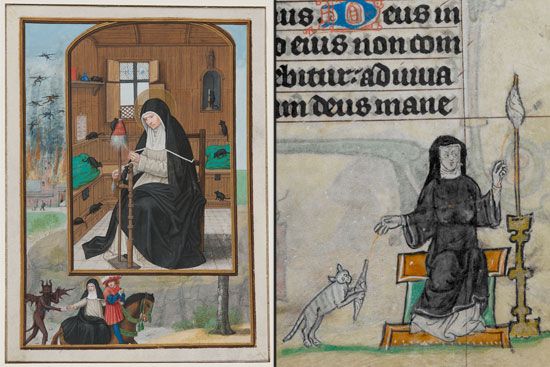 us. Deus in
o eius non com
ebitur: adiuua
m deus mane